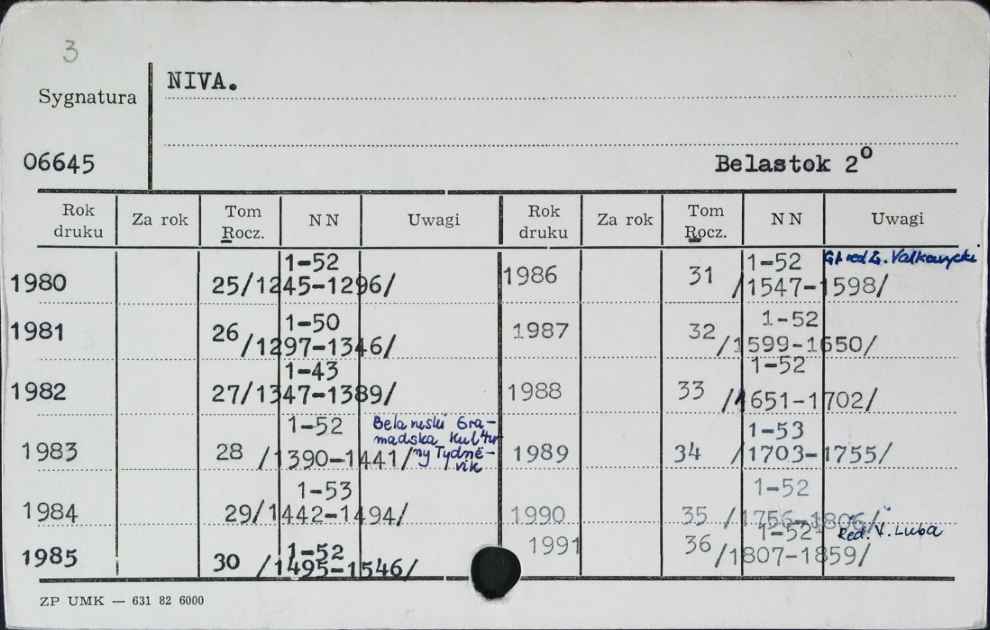 3
Sygnatura NIVA.
06645 Belastok 2°
Rok druku Za rok Tom Rocz. NN Uwagi Rok druku Za rok Tom Rocz. NN Uwagi
1980 25/1245-1296/ 1-52 1986 31 /1547-1598/ 1-52
1981 26/1297-1346/ 1-50 1987 32/1599-1650/ 1-52
1982 27/1347-1389/ 1-43 1988 33 /1651-1702/ 1-52
1983 28 /1390-1441/ 1-52 1989 34 /1703-1755/ 1-53
1984 29/1442-1494/ 1-53 1990 35 /1756-1806/ 1-52
1985 30 /1495-1546/ 1-52 1991 36/1807-1859/ 1-52 Red. V. Luba
ZP UMK — 631 82 6000